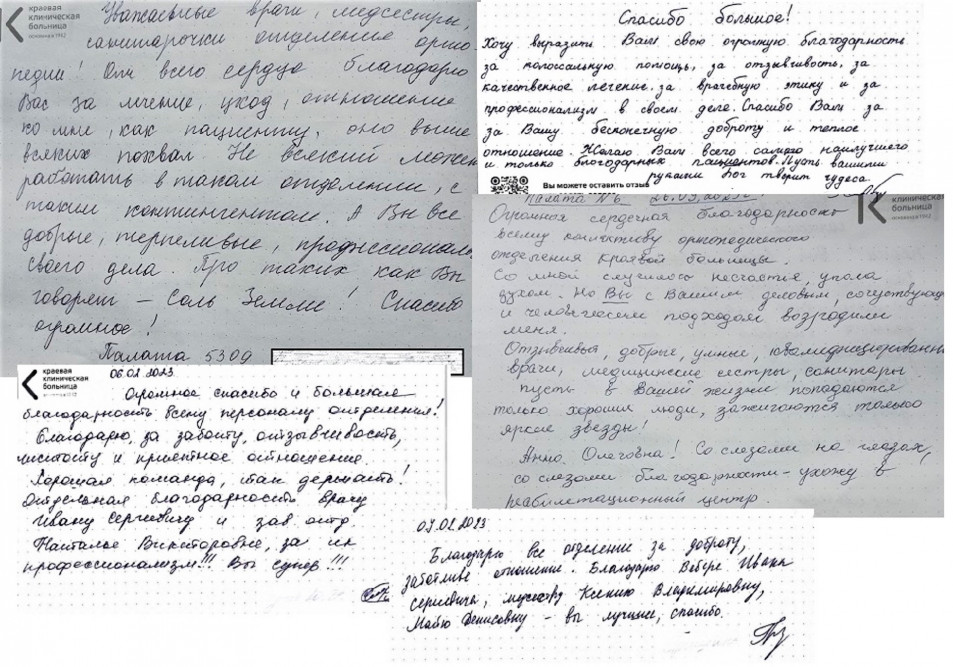 краевая
клиническая
больница
основана в 1942
Уважаемые врачи, медсестры,
санитарочки отделение орто-
педии! От всего сердца благодарю
Вас за лечение, уход, отношение
ко мне, как пациенту, оно выше
всяких похвал. Не всякий может
работать в таком отделении, с
таким контингентом. А Вы все
добрые, терпеливые, профессионалы
своего дела. Про таких как Вы
говорят – Соль Земли! Спасибо
огромное!
Палата 530д
Спасибо большое!
Хочу выразить Вам свою огромную благодарность
за колоссальную помощь, за отзывчивость, за
качественное лечение, за врачебную этику и за
профессионализм в своем деле. Спасибо Вам за
за Вашу бесконечную доброту и теплое
отношение. Желаю Вам всего самого наилучшего
и только благодарных пациентов. Пусть вашими
руками Бог творит чудеса
Вы можете оставить отзыв
Палата №6
клиническая
больница
основана в 1942
Огромная сердечная благодарность
всему коллективу ортопедического
отделения Краевой больницы.
Со мной случилось несчастье, упала
духом. Но Вы с Вашим деловым, сочувствующим
и человеческим подходом возродили
меня.
Отзывчивые, добрые, умные, квалифицированные
врачи, медицинские сестры, санитары
пусть в Вашей жизни попадаются
только хорошие люди, зажигаются только
яркие звезды!
Анна Олеговна! Со слезами на глазах,
со слезами благодарности – ухожу в
реабилитационный центр.
краевая
клиническая
больница
06.02.2023
Огромное спасибо и большая
благодарность всему персоналу отделения!
Благодарю, за заботу, отзывчивость,
чистоту и приятное отношение.
Хорошая команда, так держать!
Отдельная благодарность врачу
Ивану Сергеевичу и зав отд.
Наталье Викторовне, за их
профессионализм!!! Вы супер!!!
07.02.2023
Благодарю все отделение за доброту,
заботливое отношение. Благодарю Вебера Ивана
Сергеевича, медсестру Ксению Владимировну,
Денисовну – вы лучшие, спасибо.